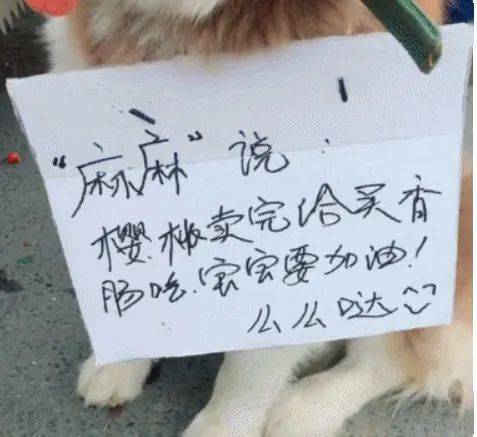 "麻麻"说：
樱桃卖完给买香
肠吃.宝宝要加油!
么么哒